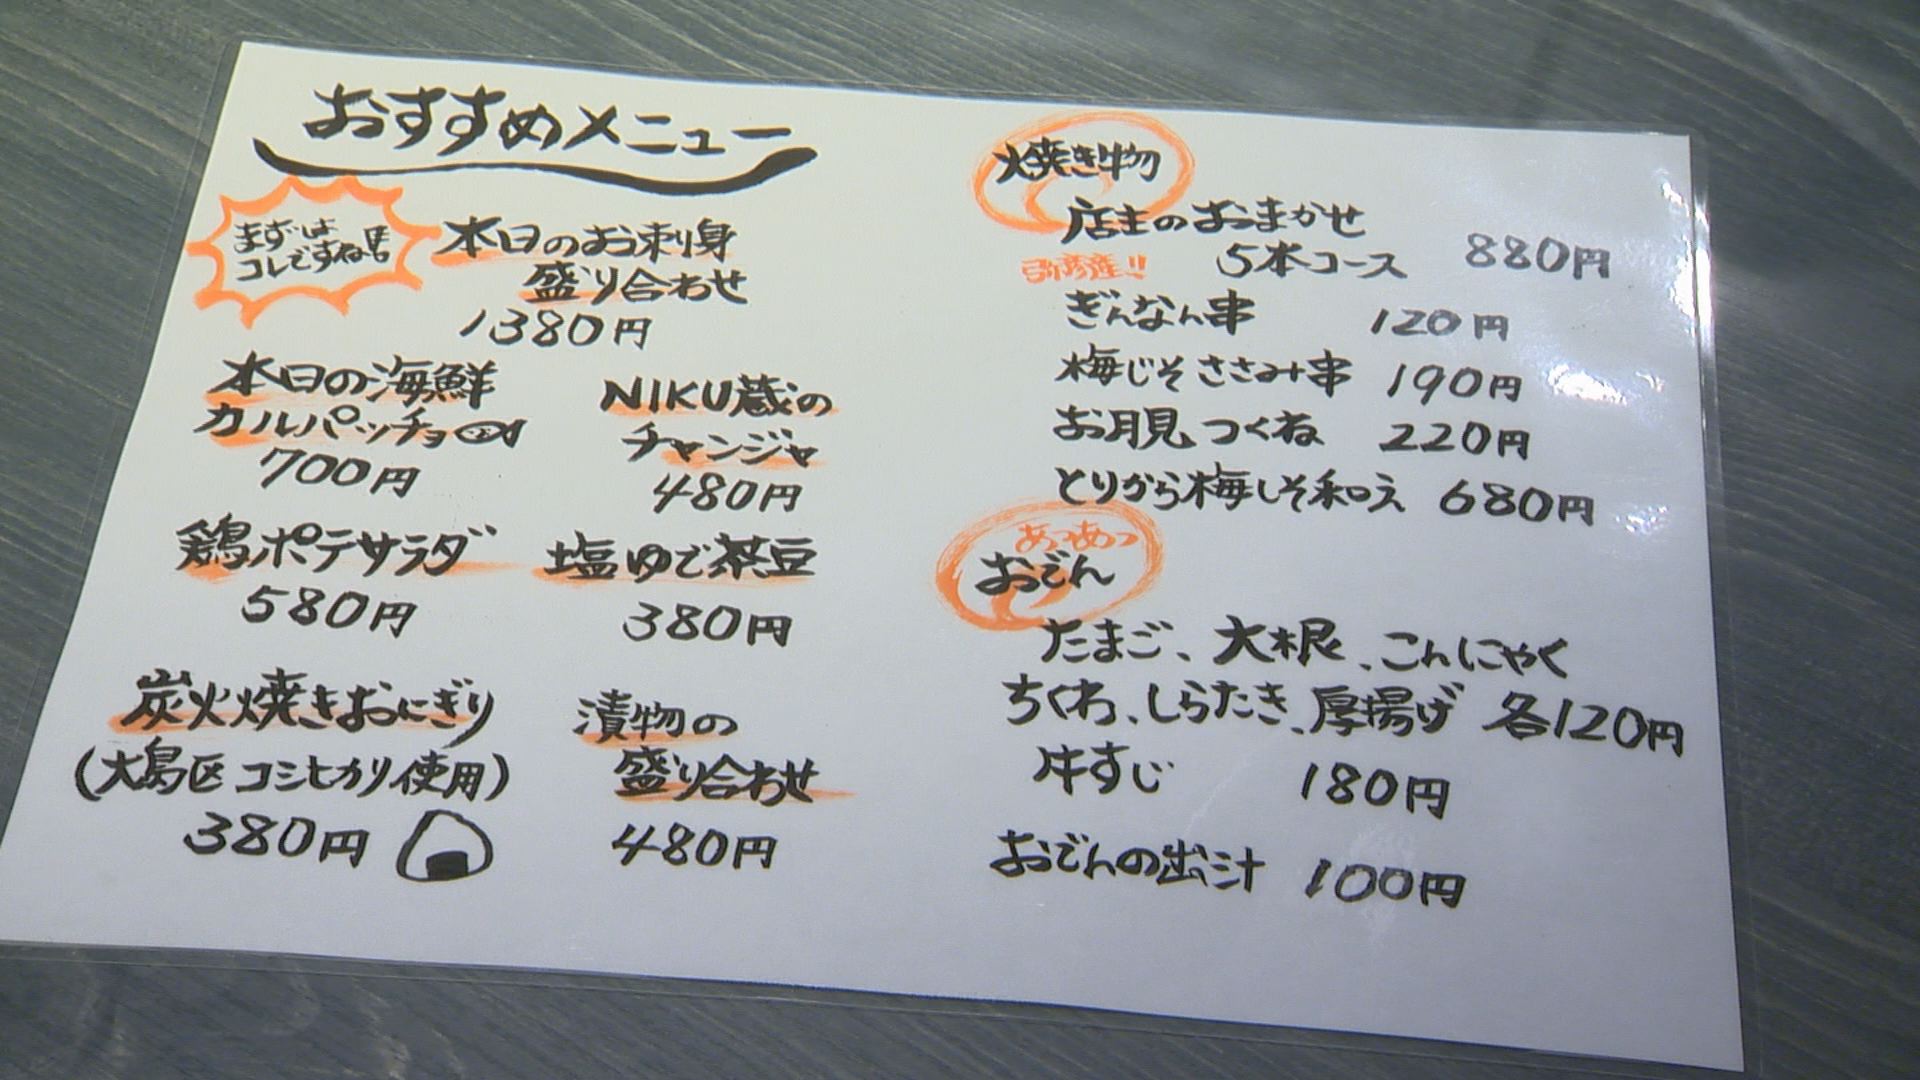 おすすめメニュー
まずは
コレですね!!
本日のお刺身
盛り合わせ
1380円
本日の海鮮
カルパッチョ
700円
NIKU蔵の
チャンジャ
480円
鶏ポテサラダ
580円
塩ゆで茶豆
380円
炭火焼きおにぎり
(大島区コシヒカリ使用)
380円
漬物の
盛り合わせ
480円
焼き物
店主のおまかせ
5本コース 880円
弥彦産!!
ぎんなん串 120円
梅じそささみ串 190円
お月見つくね 220円
とりから梅しそ和え 680円
あつあつ
おでん
たまご、大根、こんにゃく
ちくわ、しらたき、厚揚げ 各120円
牛すじ 180円
おでんの出汁 100円